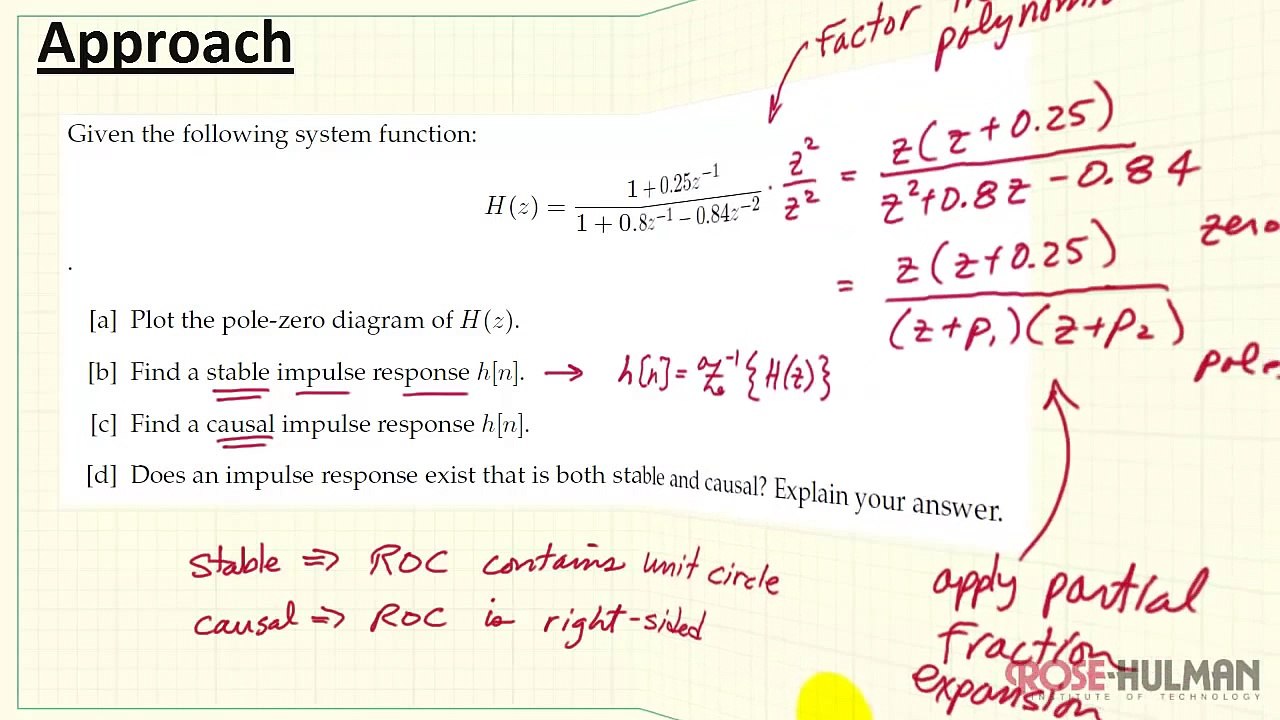 Approach
Factor
polynom
Given the following system function:
H(z) = (1 + 0.25z⁻¹)/(1 + 0.8z⁻¹ − 0.84z⁻²) · z²/z² = z(z+0.25)/(z²+0.8z−0.84)
zero
= z(z+0.25)/((z+p₁)(z+p₂))
.
[a] Plot the pole-zero diagram of H(z).
[b] Find a stable impulse response h[n]. → h[n] = Z⁻¹{H(z)}
pole
[c] Find a causal impulse response h[n].
[d] Does an impulse response exist that is both stable and causal? Explain your answer.
stable ⇒ ROC contains unit circle
causal ⇒ ROC is right-sided
apply partial
fraction
expansion
ROSE-HULMAN
INSTITUTE OF TECHNOLOGY